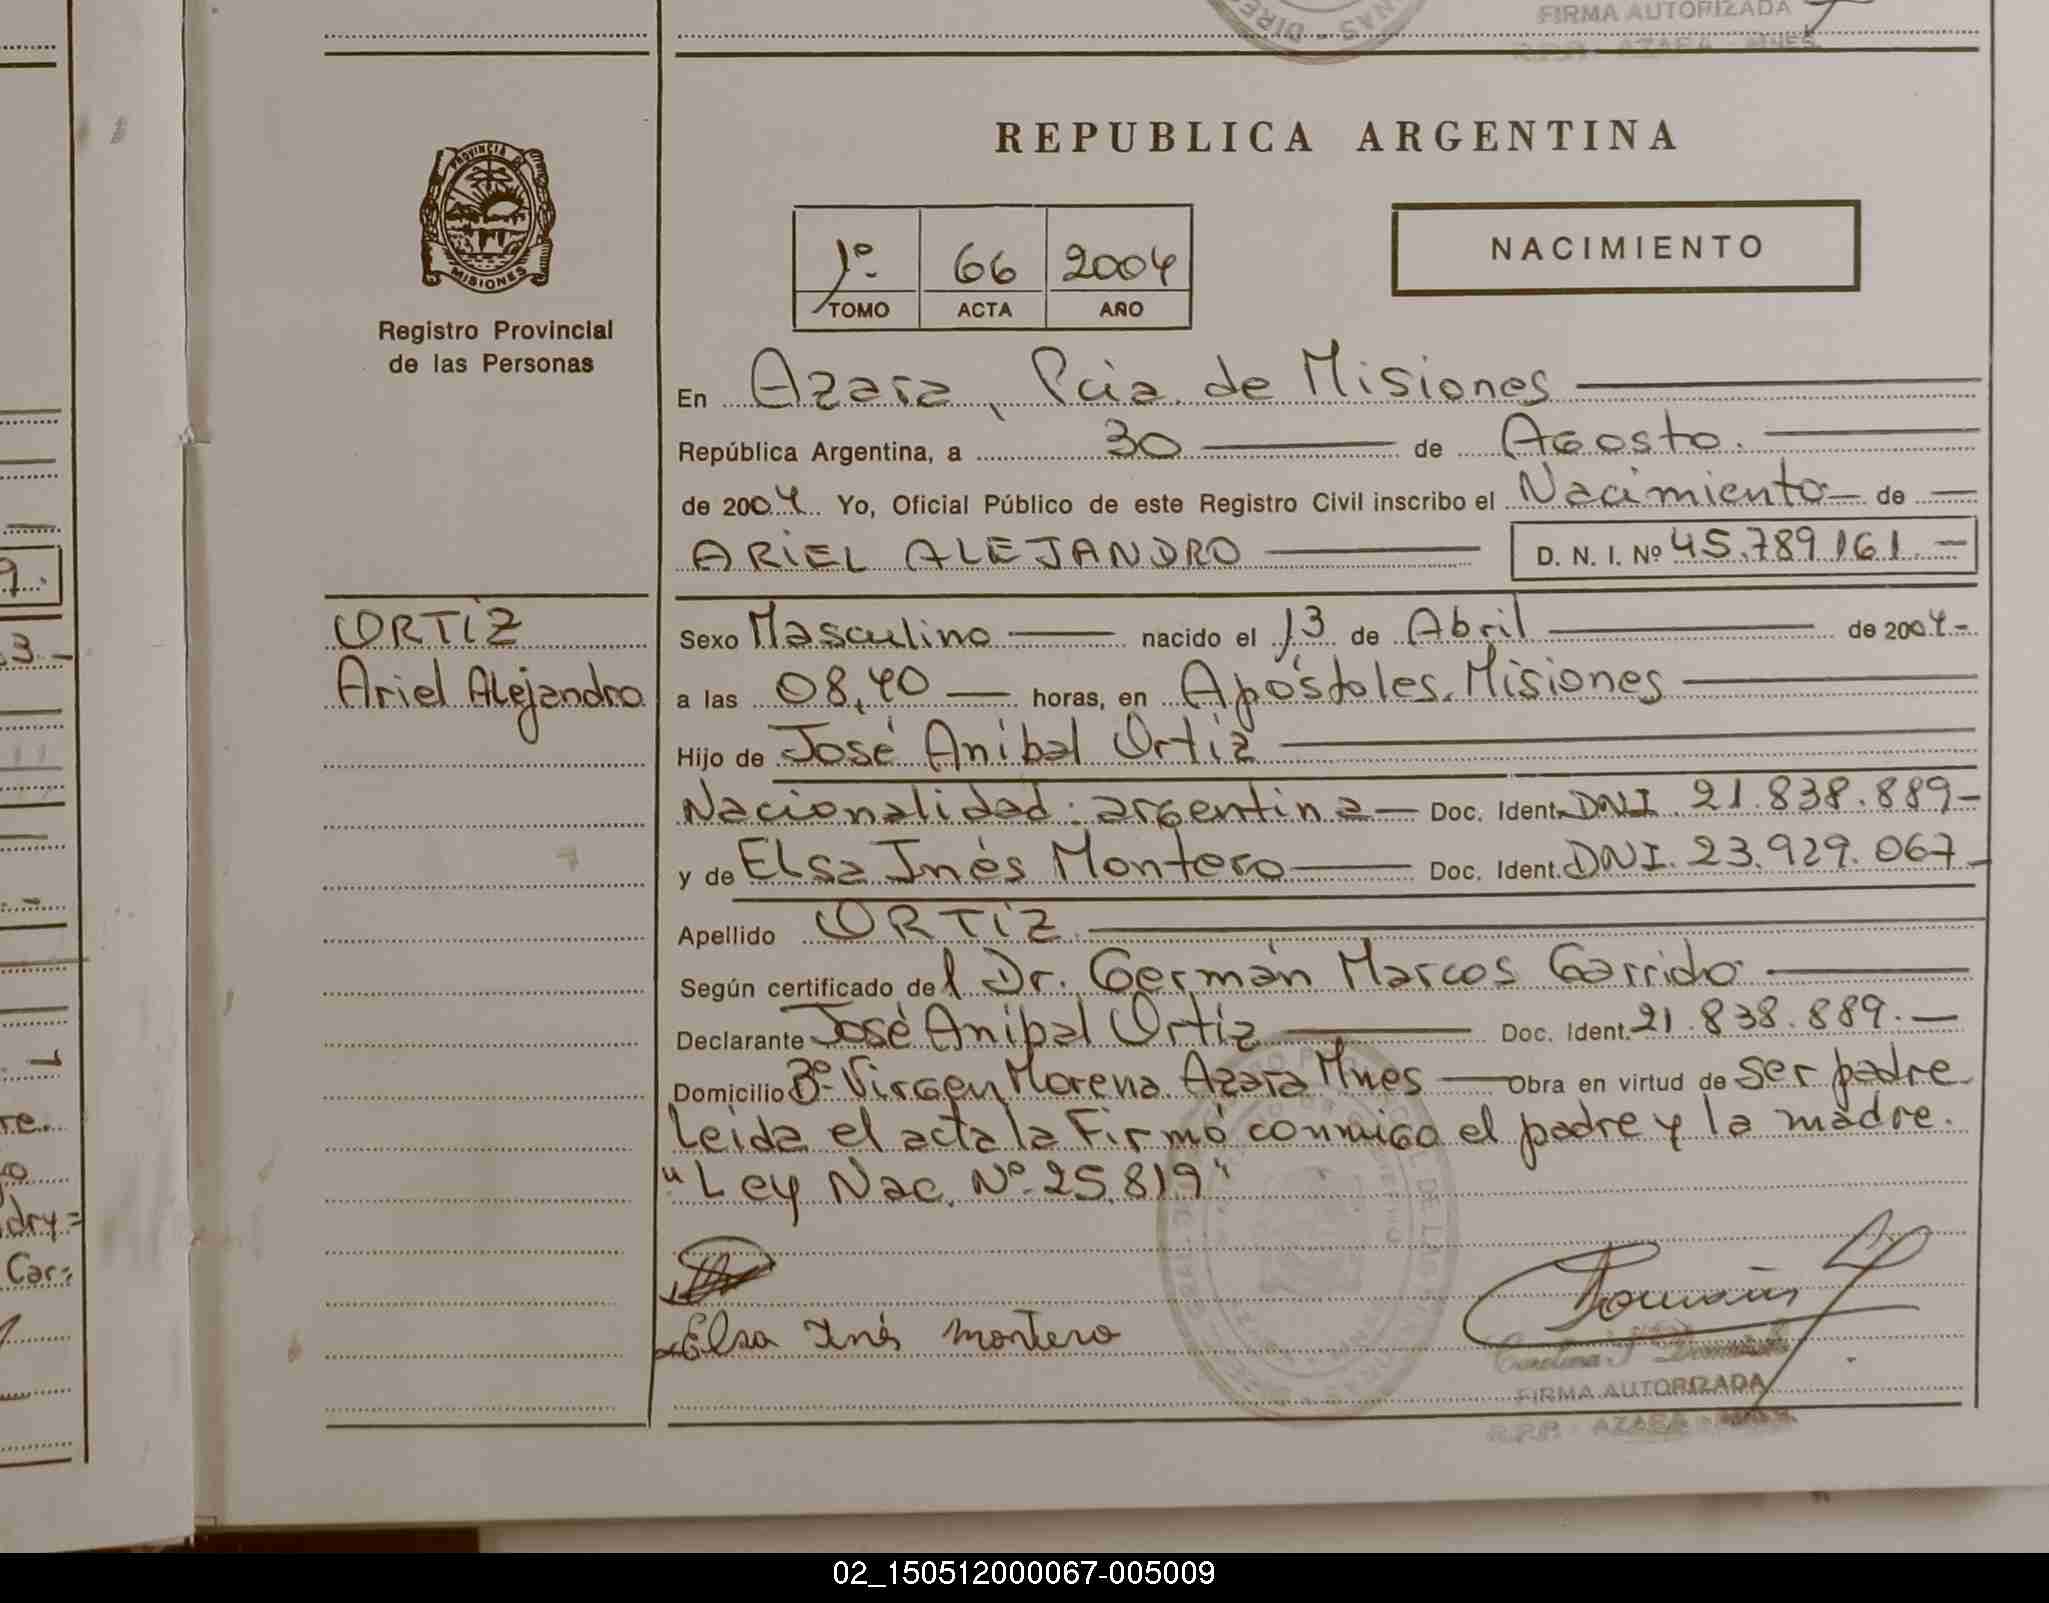 FIRMA AUTORIZADA
R.P.P. - AZARA - MNES.
REPUBLICA ARGENTINA
PROVINCIA DE
MISIONES
Registro Provincial
de las Personas
1º 66 2004
TOMO ACTA AÑO
NACIMIENTO
En Azara, Pcia. de Misiones
República Argentina, a 30 de Agosto.
de 2004 Yo, Oficial Público de este Registro Civil inscribo el Nacimiento de
ARIEL ALEJANDRO D. N. I. Nº 45.789.161.-
ORTIZ
Ariel Alejandro
Sexo Masculino nacido el 13 de Abril de 2004-
a las 08,40 horas, en Apóstoles. Misiones
Hijo de José Anibal Ortiz
Nacionalidad: argentina- Doc. Ident. DNI 21.838.889-
y de Elsa Inés Montero Doc. Ident. DNI. 23.929.067-
Apellido ORTIZ.
Según certificado del Dr. Germán Marcos Garrido
Declarante José Anibal Ortiz Doc. Ident. 21.838.889.-
Domicilio Bº Virgen Morena. Azara Mnes Obra en virtud de ser padre
Leida el acta la Firmó conmigo el padre y la madre.
"Ley Nac. Nº 25.819"
Elsa Inés Montero
FIRMA AUTORIZADA
R.P.P. - AZARA - MNES.
9.
3-
re.
dry=
Car=
02_150512000067-005009